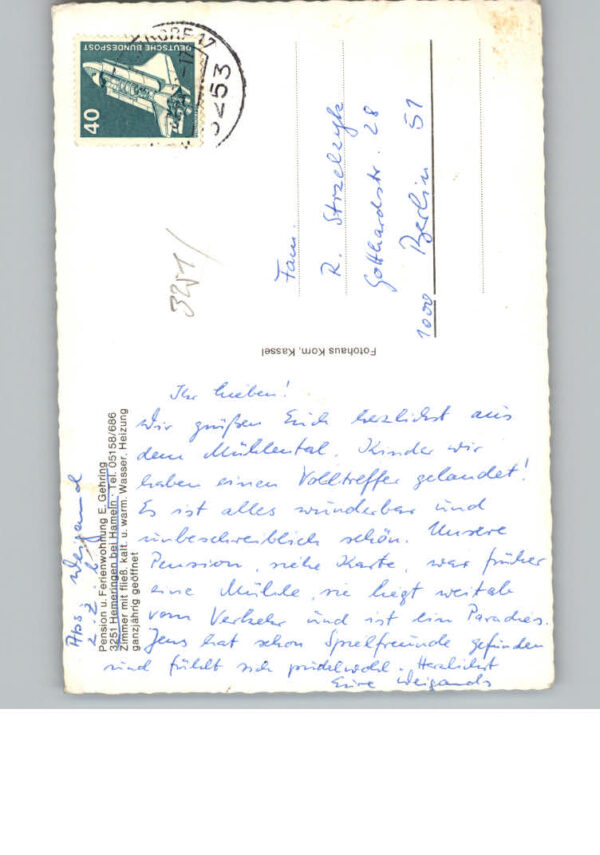 DEUTSCHE BUNDESPOST
40
DORF 17
3253
3251/
Fam.
R. Strzelczyk
Gotthardstr. 28
1000 Berlin 51
Fotohaus Korn, Kassel
Abs. Weigand
z. Z. bei
Pension u. Ferienwohnung E. Gehring
3251 Hemeringen bei Hameln · Tel. 05158/686
Zimmer mit fließ. kalt. u. warm. Wasser, Heizung
ganzjährig geöffnet
Ihr Lieben!
Wir grüßen Euch herzlichst aus
dem Mühlental. Kinder wir
haben einen Volltreffer gelandet!
Es ist alles wunderbar und
unbeschreiblich schön. Unsere
Pension, siehe Karte, war früher
eine Mühle, sie liegt weitab
vom Verkehr und ist ein Paradies.
Jens hat schon Spielfreunde gefunden
und fühlt sich pudelwohl. Herzlichst
Eure Weigands